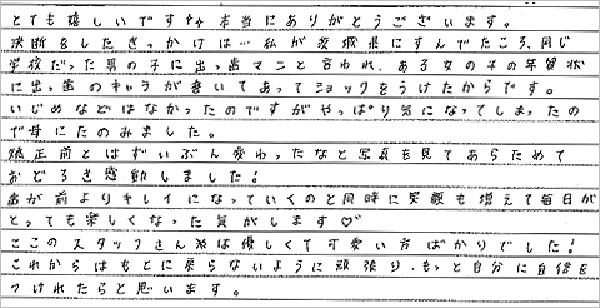 とても嬉しいです☆☆ 本当にありがとうございます。
決断をしたきっかけは…私が愛媛県にすんでたころ、同じ
学校だった男の子に出っ歯マンと言われ、ある女の子の年賀状
に出っ歯のキャラが書いてあってショックをうけたからです。
いじめなどはなかったのですがやっぱり気になってしまったの
で母にたのみました。
矯正前とはずいぶん変わったなと写真も見てあらためて
おどろき感動しました!
歯が前よりキレイになっていくのと同時に笑顔も増えて毎日が
とっても楽しくなった気がします♡
ここのスタッフさん達は優しくて可愛い方ばかりでした!
これからはもとに戻らないように頑張り、もっと自分に自信を
つけれたらと思います。